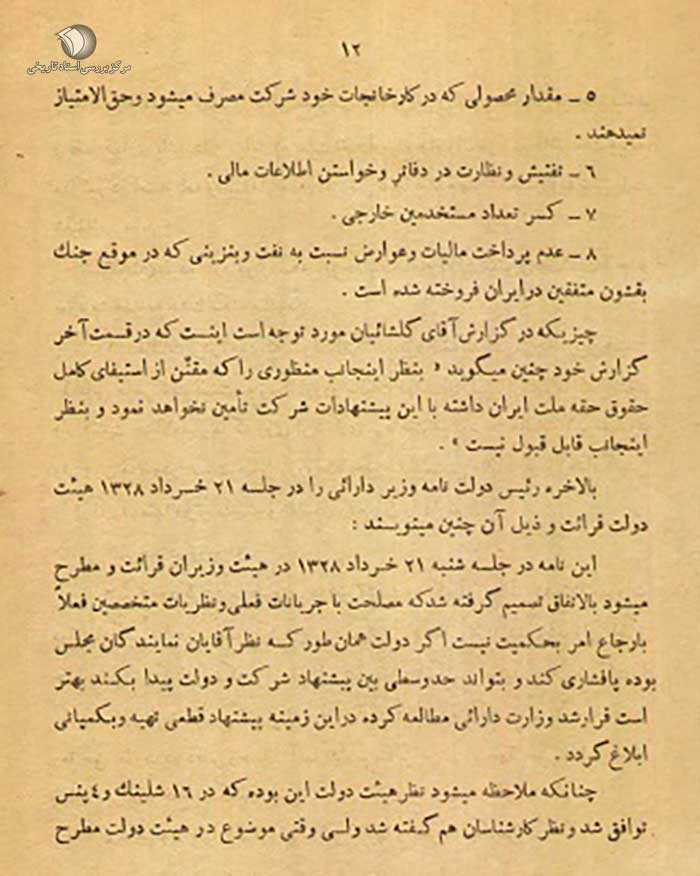 مرکز بررسی اسناد تاریخی
۱۲
۵ ـ مقدار محصولی که در کارخانجات خود شرکت مصرف میشود وحق‌الامتیاز
نمیدهند .
۶ ـ تفتیش و نظارت در دفاتر وخواستن اطلاعات مالی .
۷ ـ کسر تعداد مستخدمین خارجی .
۸ ـ عدم پرداخت مالیات وعوارض نسبت به نفت وبنزینی که در موقع جنك
بقشون متفقین درایران فروخته شده است .
چیزیکه در گزارش آقای گلشائیان مورد توجه است اینست که درقسمت آخر
گزارش خود چنین میگوید « بنظر اینجانب منظوری را که مقنّن از استیفای کامل
حقوق حقه ملت ایران داشته با این پیشنهادات شرکت تأمین نخواهد نمود و بنظر
اینجانب قابل قبول نیست » .
بالاخره رئیس دولت نامه وزیر دارائی را در جلسه ۲۱ خرداد ۱۳۲۸ هیئت
دولت قرائت و ذیل آن چنین مینویسند :
این نامه در جلسه شنبه ۲۱ خرداد ۱۳۲۸ در هیئت وزیران قرائت و مطرح
میشود بالاتفاق تصمیم گرفته شدکه مصلحت با جریانات فعلی ونظریات متخصصین فعلاً
بارجاع امر بحکمیت نیست اگر دولت همان طور که نظر آقایان نمایندگان مجلس
بوده پافشاری کند و بتواند حدوسطی بین پیشنهاد شرکت و دولت پیدا بکند بهتر
است قرارشد وزارت دارائی مطالعه کرده دراین زمینه پیشنهاد قطعی تهیه وبکمپانی
ابلاغ گردد .
چنانکه ملاحظه میشود نظرهیئت دولت این بوده که در ۱۶ شلینك و۴ پنس
توافق شد ونظر کارشناسان هم گفته شد ولی وقتی موضوع در هیئت دولت مطرح